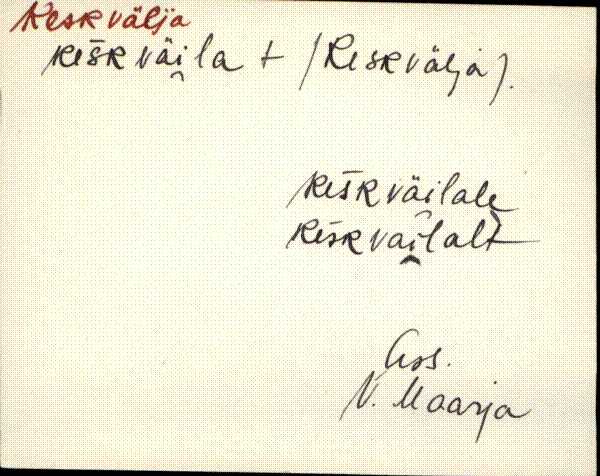 Keskvälja
kešk väi̯la + (Keskvälja).
kešk väilale
kešk väi̯lalt
Ass.
V. Maarja